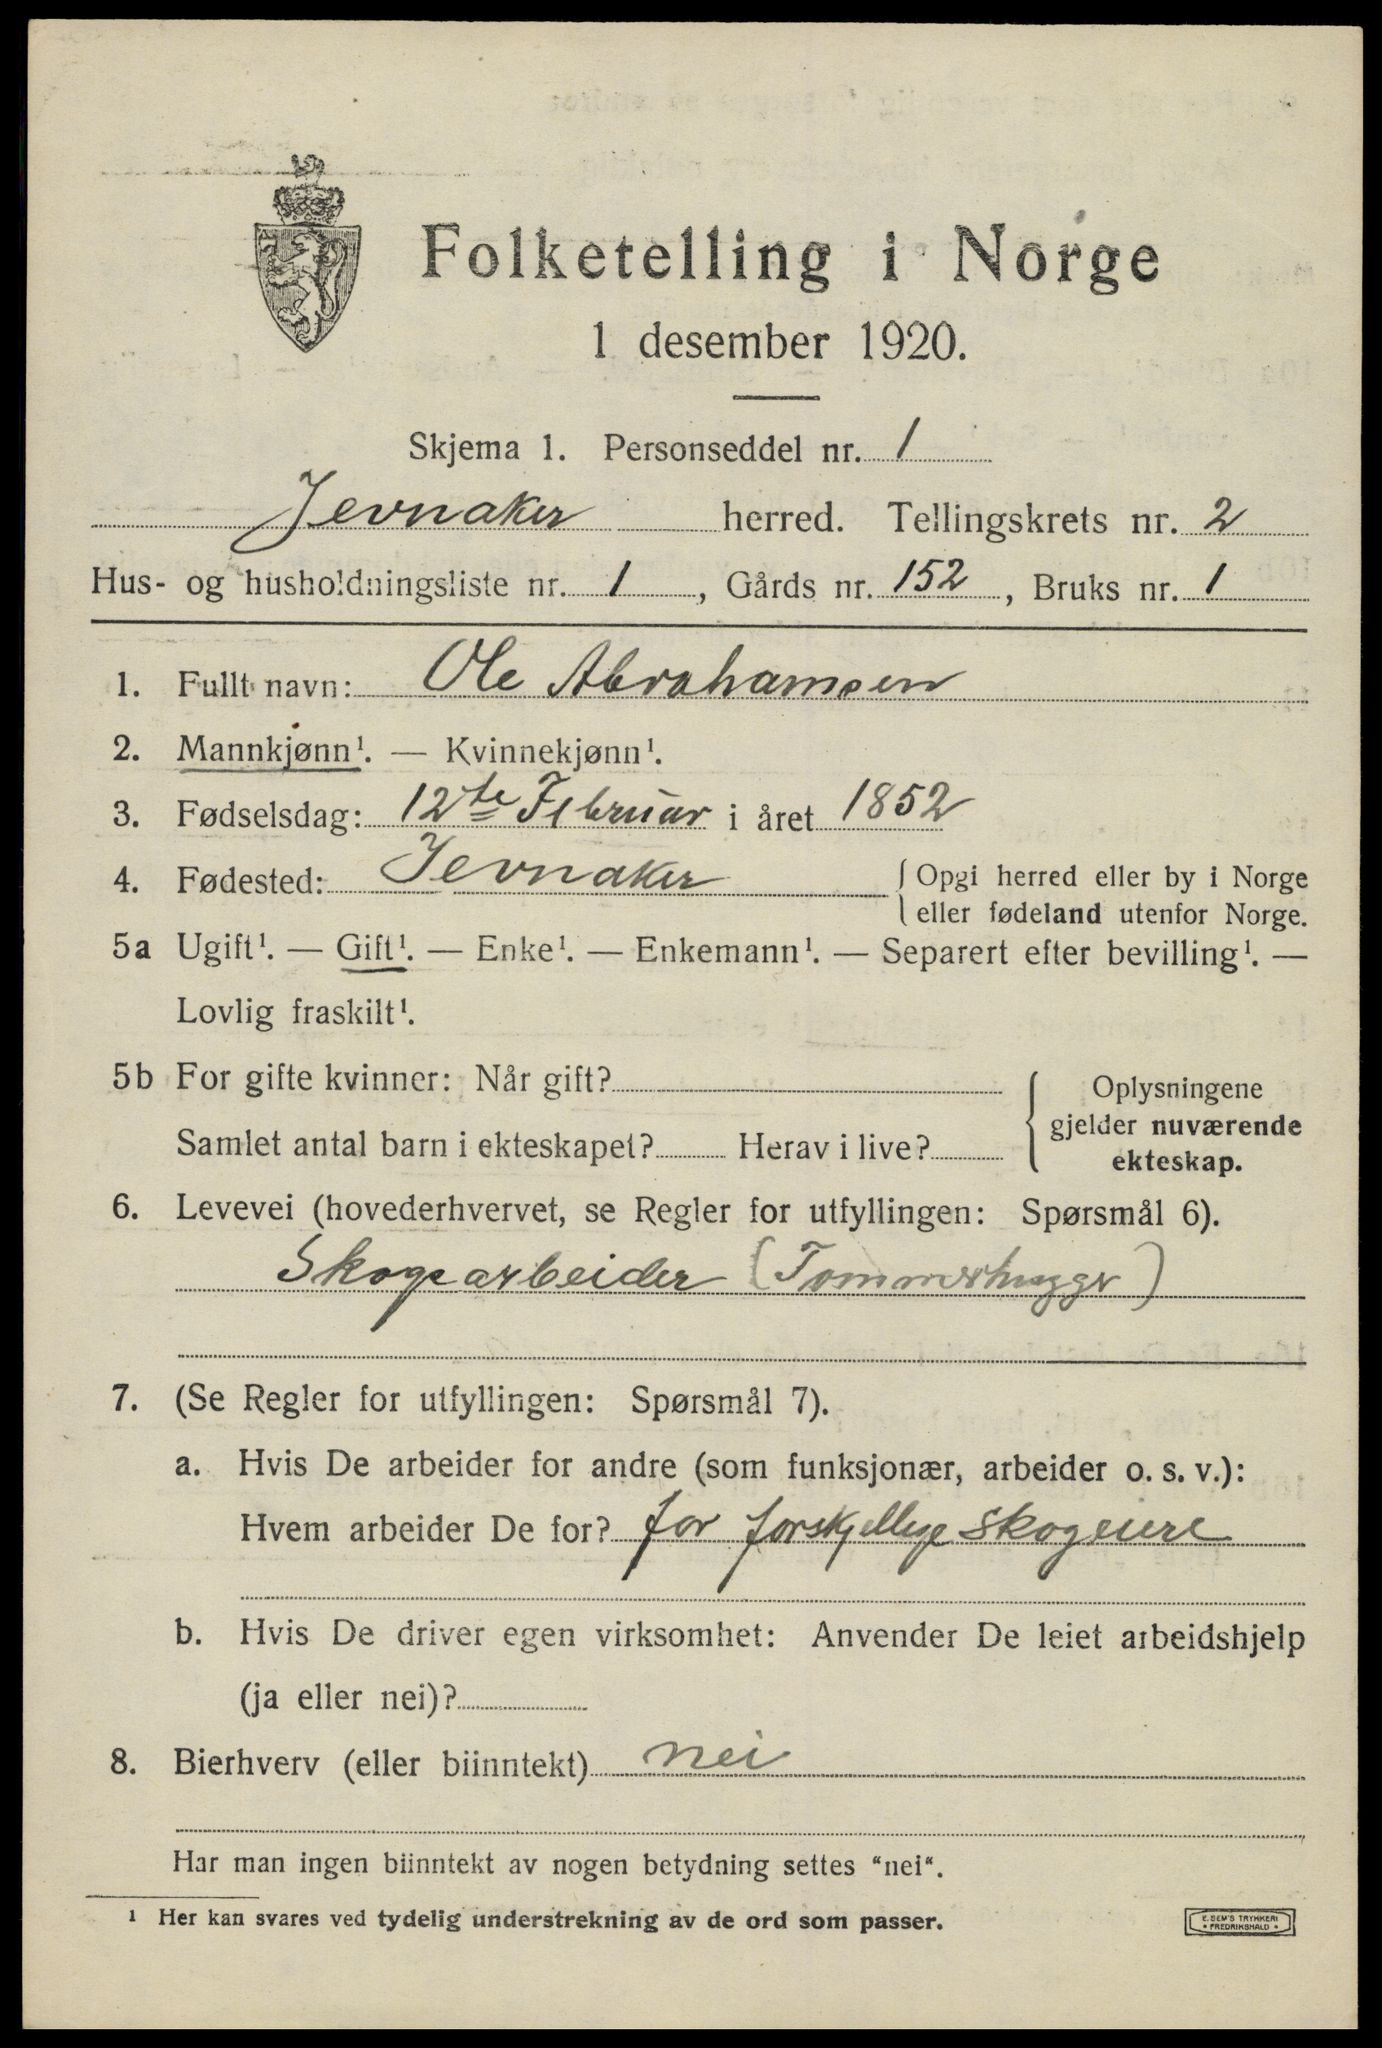 Folketelling i Norge
1 desember 1920.
Skjema 1. Personseddel nr. 1
Jevnaker herred. Tellingskrets nr. 2
Hus- og husholdningsliste nr. 1, Gårds nr. 152, Bruks nr. 1
1. Fullt navn: Ole Abrahamsen
2. Mannkjønn¹. — Kvinnekjønn¹.
3. Fødselsdag: 12te Februar i året 1852
4. Fødested: Jevnaker { Opgi herred eller by i Norge
eller fødeland utenfor Norge.
5a Ugift¹. — Gift¹. — Enke¹. — Enkemann¹. — Separert efter bevilling¹. —
Lovlig fraskilt¹.
5b For gifte kvinner: Når gift?
Samlet antal barn i ekteskapet? Herav i live?
{ Oplysningene
gjelder nuværende
ekteskap.
6. Levevei (hovederhvervet, se Regler for utfyllingen: Spørsmål 6).
Skogsarbeider (Tømmerhugger)
7. (Se Regler for utfyllingen: Spørsmål 7).
a. Hvis De arbeider for andre (som funksjonær, arbeider o. s. v.):
Hvem arbeider De for? for forskjellige skogeiere
b. Hvis De driver egen virksomhet: Anvender De leiet arbeidshjelp
(ja eller nei)?
8. Bierhverv (eller biinntekt) nei
Har man ingen biinntekt av nogen betydning settes "nei".
¹ Her kan svares ved tydelig understrekning av de ord som passer.
E. SEM'S TRYKKERI
• FREDRIKSHALD •